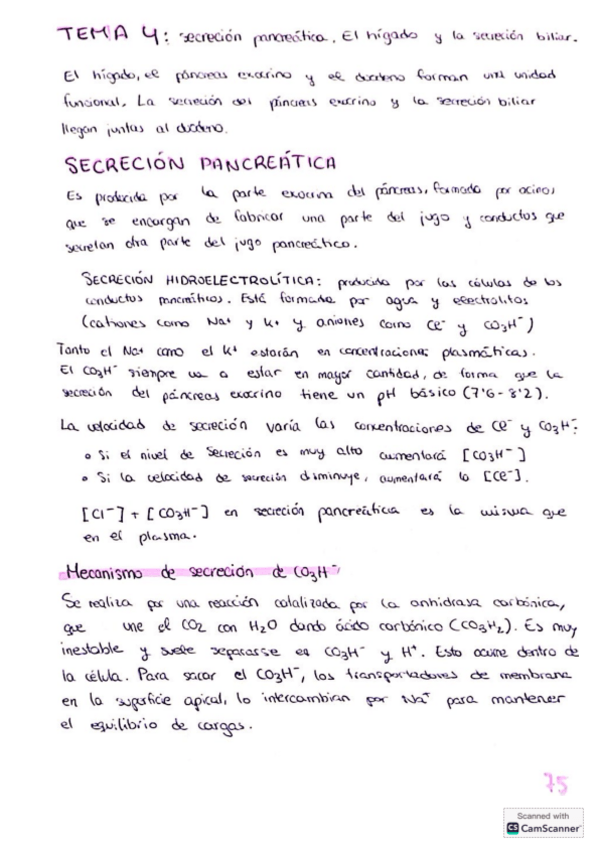 TEMA 4: secreción pancreática. El hígado y la secreción biliar.
El hígado, el páncreas exocrino y el duodeno forman una unidad
funcional. La secreción del páncreas exocrino y la secreción biliar
llegan juntas al duodeno.
SECRECIÓN PANCREÁTICA
Es producida por la parte exocrina del páncreas, formada por acinos,
que se encargan de fabricar una parte del jugo y conductos que
secretan otra parte del jugo pancreático.
SECRECIÓN HIDROELECTROLÍTICA: producida por las células de los
conductos pancreáticos. Está formada por agua y electrolitos
(cationes como Na+ y K+ y aniones como Cl- y CO3H-)
Tanto el Na+ como el K+ estarán en concentraciones plasmáticas.
El CO3H- siempre va a estar en mayor cantidad, de forma que la
secreción del páncreas exocrino tiene un pH básico (7'6 - 8'2).
La velocidad de secreción varía las concentraciones de Cl- y CO3H-:
• Si el nivel de secreción es muy alto aumentará [CO3H-]
• Si la velocidad de secreción disminuye, aumentará la [Cl-].
[Cl-] + [CO3H-] en secreción pancreática es la misma que
en el plasma.
Mecanismo de secreción de CO3H-
Se realiza por una reacción catalizada por la anhidrasa carbónica,
que une el CO2 con H2O dando ácido carbónico (CO3H2). Es muy
inestable y suele separarse en CO3H- y H+. Esto ocurre dentro de
la célula. Para sacar el CO3H-, los transportadores de membrana
en la superficie apical, lo intercambian por Na+ para mantener
el equilibrio de cargas.
75
Scanned with
CS CamScanner